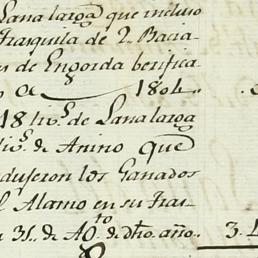 Lana larga que incluso
Trasquila de 2. Bacia
s de Engorda berifica
o a 1804.
18 liv.s de Lana larga
liv.s de Anino que
dujeron los Ganados
l Alamo en su Tras
a 31. de Ag.to de dho. año. 3.